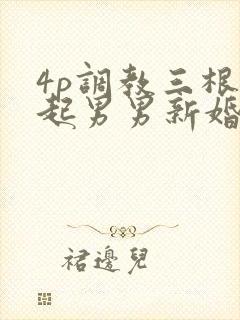 4p調教三根
起男男新婚
裙邊兒